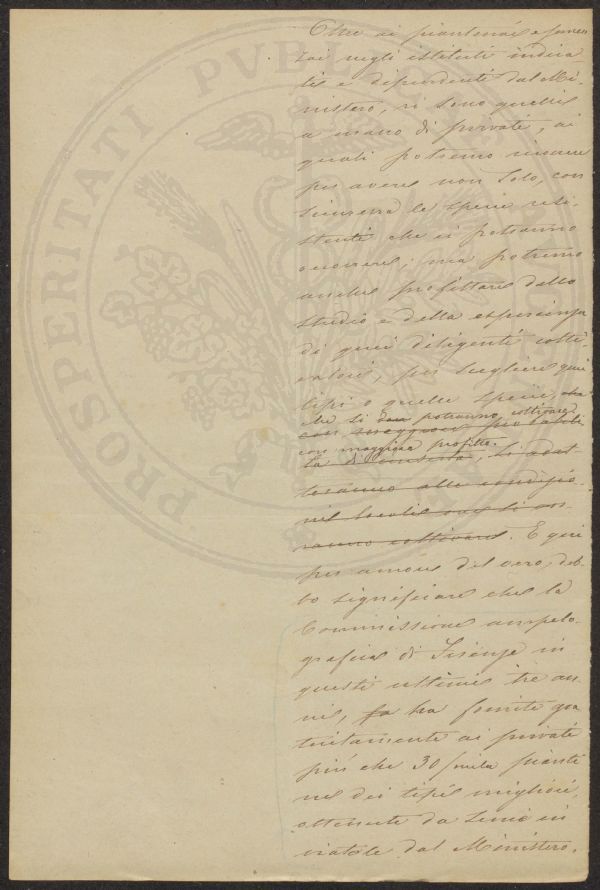 Oltre ai piantonai e semen
zai negli istituti indica
ti e dipendenti dal Mi-
nistero, vi sono quelli
a mano di privati, ai
quali potremo ricorrere
per avere non solo, con
sicurezza le specie resi-
stenti che ci potranno
occorrere; ma potremo
anche profittare dello
studio e della esperienza
di quei diligenti colti-
vatori, per scegliere quei
tipi o quelle specie, che
che si potranno coltivare
con maggiore probabili
con maggiore profitto.
tà di riuscita, si adat-
teranno alle condizio-
ni locali ove si vor-
ranno coltivare. E qui
per amore del vero, deb-
bo significare che la
Commissione ampelo-
grafica di Firenze in
questi ultimi tre an
ni, fa ha fornite gra
tuitamente ai privati
più che 30/mila pianti
ne dei tipi migliori,
ottenute da semi in
viatole dal Ministero.
PROSPERITATI PVBL